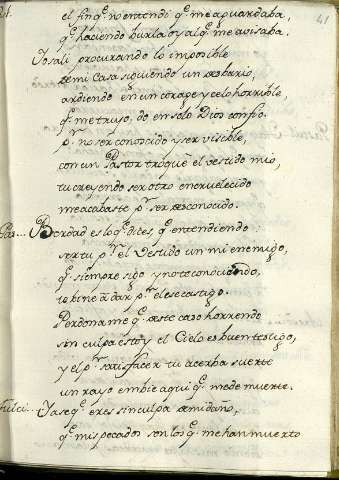 41
el fin q.e no entendi q.e me aguardaba,
q.e haciendo burla oy al q.e me avisaba.
Yo sali procurando lo imposible
de mi Casa siguiendo un
ardiendo en un corage y celo horrible
q.e me trujo, do en solo Dios confio.
p.r no ser conocido y ser visible,
con un Pastor troquè el vestido mio,
tu creyendo ser otro encruelecido
me acabaste p.r ser desconocido.
Pas... Verdad es lo q.e dices, q.e entendiendo
ser tu p.r el Vestido un mi enemigo,
q.e siempre sigo y no te conociendo,
te vine à dar p.r el ese castigo.
Perdoname q.e deste caso horrendo
sin culpa estoy el Cielo es buen testigo,
y el p.r satisfacer tu acerba suerte
un rayo embie aqui q.e me de muerte.
Fulci.. Ya se q.e eres sin culpa de mi daño,
q.e mis pecados son los q.e me han muerto